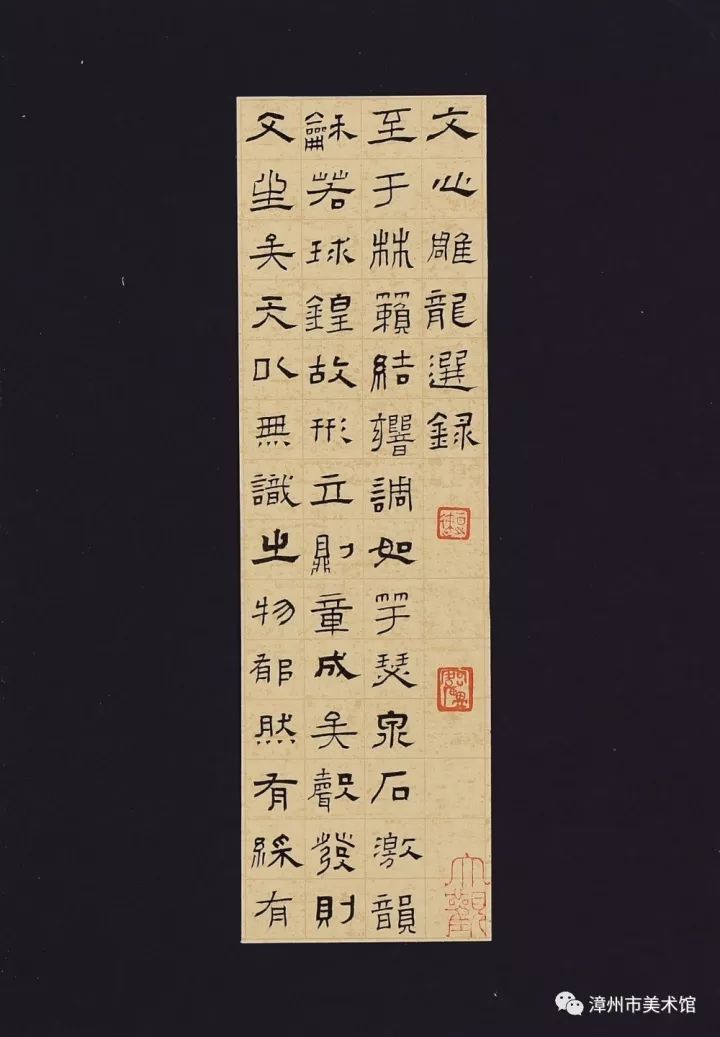 文心雕龍選録
至于林籟結響調如竽瑟泉石激韻
龢若球鍠故形立則章成矣聲發則
文生矣夫以無識之物郁然有綵有
大觀
漳州市美术馆